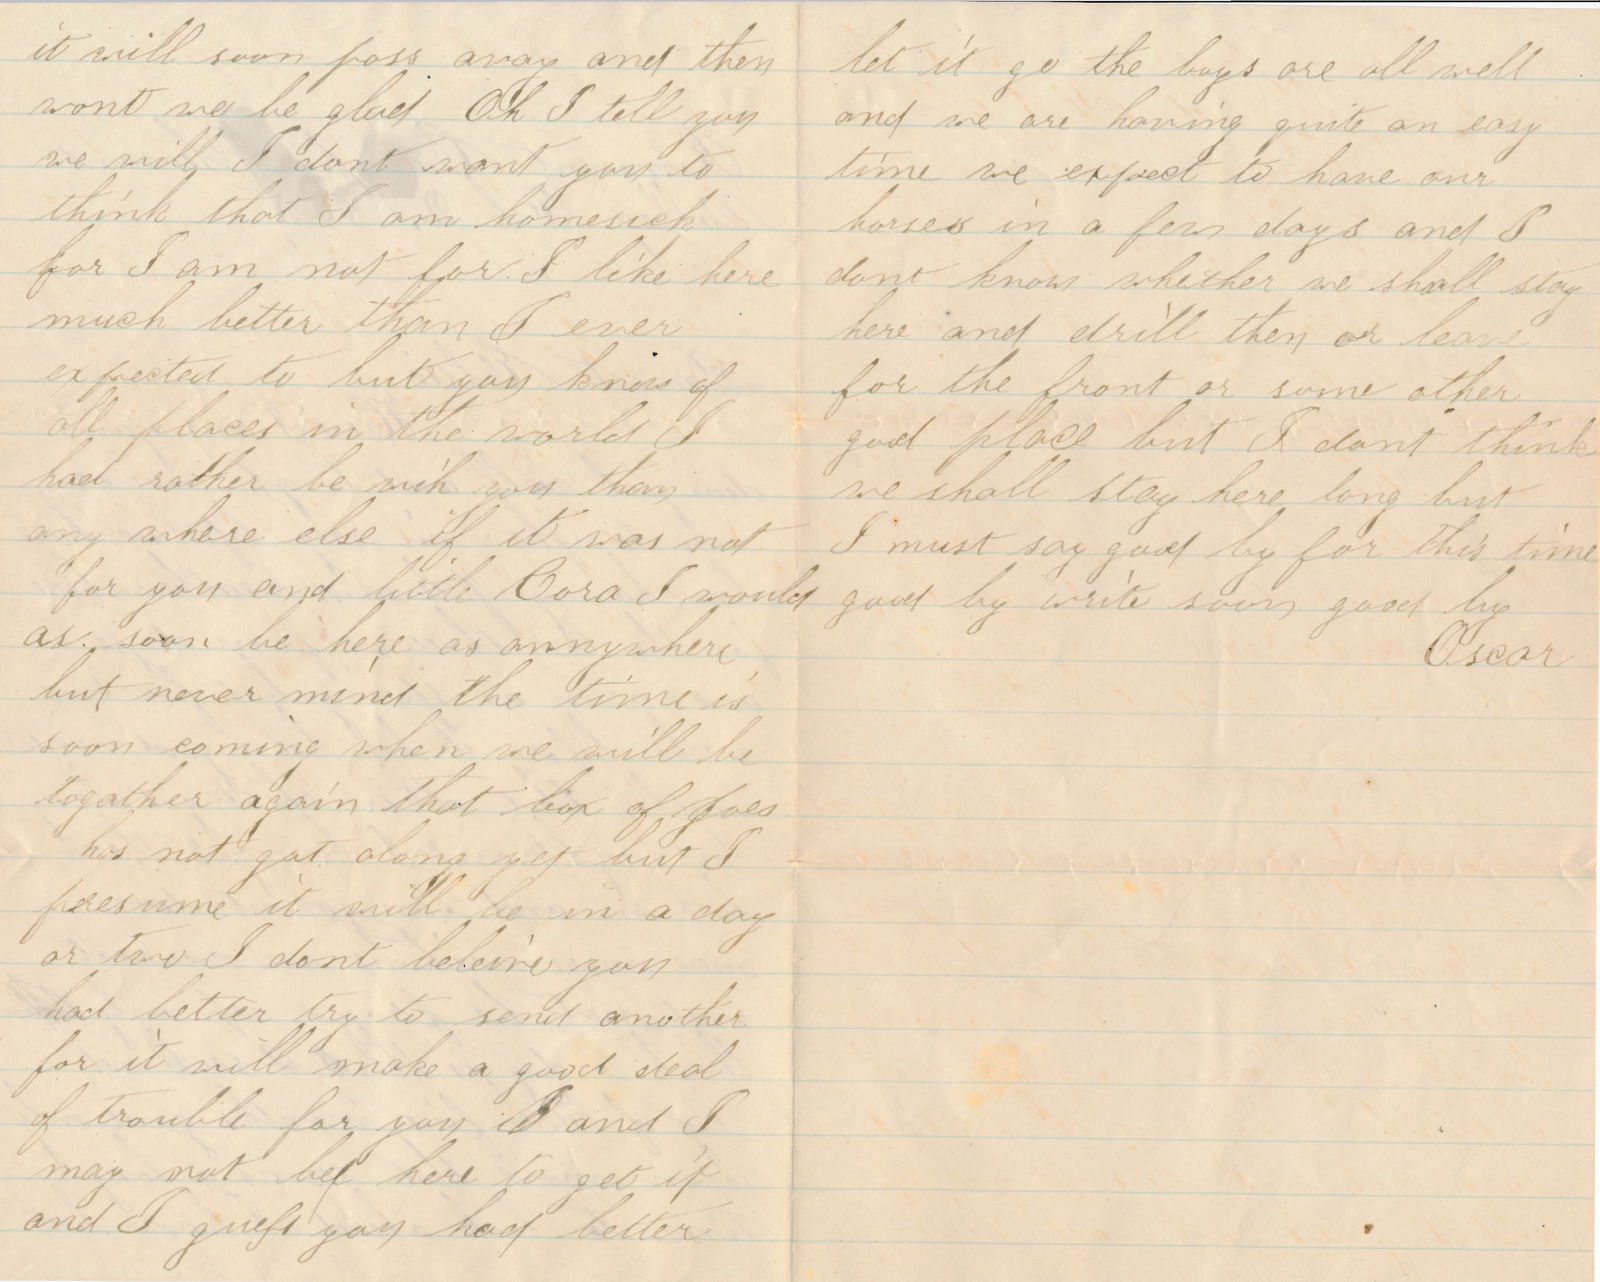 it will soon pass away and then
wont we be glad Oh I tell you
we will I dont want you to
think that I am homesick
for I am not for I like here
much better than I ever
expected to but you know of
all places in the world I
had rather be wih you than
any where else if it was not
for you and little Cora I would
as soon be here as annywhere
but never mind the time is
soon coming when we will be
togather again that box of
has not got along yet but I
presume it will be in a day
or two I dont beleive you
had better try to send another
for it will make a good deal
of trouble for you and I
may not be here to get it
and I guess you had better
let it go the boys are all well
and we are having quite an easy
time we expect to have our
horses in a few days and I
dont know whether we shall stay
here and drill then or leave
for the front or some other
good place but I dont think
we shall stay here long but
I must say good by for this time
good by write soon good by
Oscar